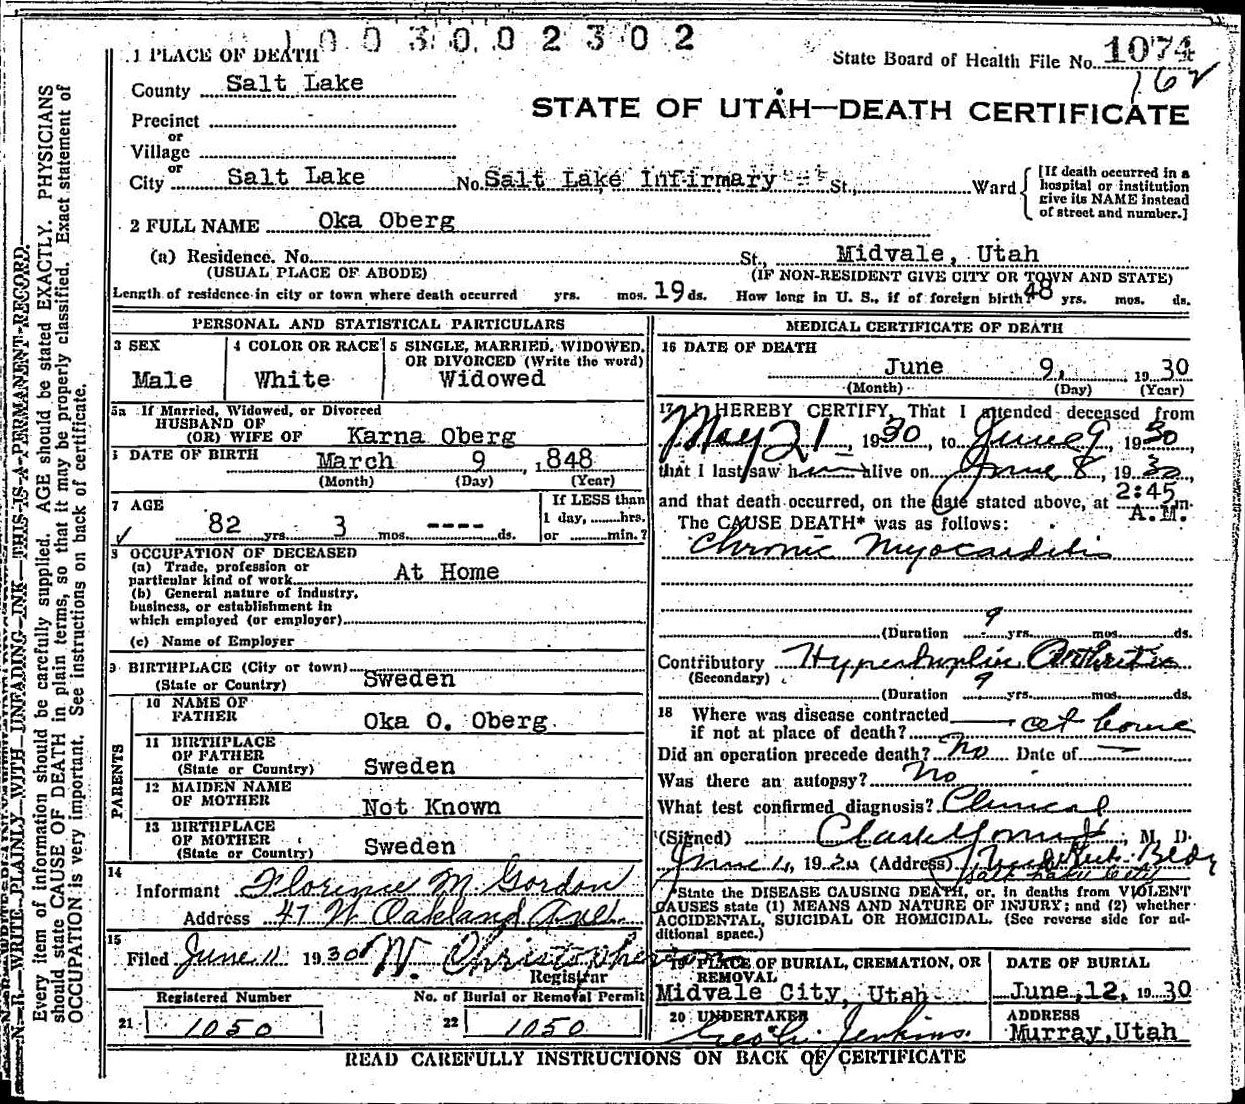 1003002302
1 PLACE OF DEATH
State Board of Health File No. 1074
162
County Salt Lake
STATE OF UTAH—DEATH CERTIFICATE
Precinct
or
Village
or
City Salt Lake No. Salt Lake Infirmary St., Ward
[If death occurred in a hospital or institution give its NAME instead of street and number.]
2 FULL NAME Oka Oberg
(a) Residence. No. St., Midvale, Utah
(USUAL PLACE OF ABODE) (IF NON-RESIDENT GIVE CITY OR TOWN AND STATE)
Length of residence in city or town where death occurred yrs. mos. 19 ds. How long in U. S., if of foreign birth? 48 yrs. mos. ds.
PERSONAL AND STATISTICAL PARTICULARS
3 SEX
Male
4 COLOR OR RACE
White
5 SINGLE, MARRIED, WIDOWED, OR DIVORCED (Write the word)
Widowed
5a If Married, Widowed, or Divorced
HUSBAND OF
(OR) WIFE OF Karna Oberg
6 DATE OF BIRTH March 9, 1848
(Month) (Day) (Year)
7 AGE
82 yrs. 3 mos. ---- ds.
If LESS than
1 day, hrs.
or min.?
8 OCCUPATION OF DECEASED
(a) Trade, profession or
particular kind of work At Home
(b) General nature of industry,
business, or establishment in
which employed (or employer)
(c) Name of Employer
9 BIRTHPLACE (City or town)
(State or Country) Sweden
PARENTS
10 NAME OF
FATHER Oka O. Oberg
11 BIRTHPLACE
OF FATHER
(State or Country) Sweden
12 MAIDEN NAME
OF MOTHER Not Known
13 BIRTHPLACE
OF MOTHER
(State or Country) Sweden
14
Informant Florence M. Gordon
Address 47 W Oakland Ave
15
Filed June 11 1930 W. Christopherson
Registrar
Registered Number
21 1050
No. of Burial or Removal Permit
22 1050
MEDICAL CERTIFICATE OF DEATH
16 DATE OF DEATH
June 9, 1930
(Month) (Day) (Year)
17 I HEREBY CERTIFY, That I attended deceased from
May 21, 1930, to June 9 1930,
that I last saw him alive on June 8, 1930,
and that death occurred, on the date stated above, at 2:45 m.
A.M.
The CAUSE DEATH* was as follows:
Chronic Myocarditis
(Duration 9 yrs. mos. ds.
Contributory Arthritis
(Secondary)
(Duration 9 yrs. mos. ds.
18 Where was disease contracted
if not at place of death? at home
Did an operation precede death? No Date of —
Was there an autopsy? No
What test confirmed diagnosis? Clinical
(Signed) Clark Young, M. D.
June 1930 (Address) Bldg
Salt Lake City
*State the DISEASE CAUSING DEATH, or, in deaths from VIOLENT
CAUSES state (1) MEANS AND NATURE OF INJURY; and (2) whether
ACCIDENTAL, SUICIDAL OR HOMICIDAL. (See reverse side for additional space.)
19 PLACE OF BURIAL, CREMATION, OR
REMOVAL
Midvale City, Utah
DATE OF BURIAL
June, 12, 1930
20 UNDERTAKER
Jenkins
ADDRESS
Murray, Utah
READ CAREFULLY INSTRUCTIONS ON BACK OF CERTIFICATE
N. B.—WRITE PLAINLY WITH UNFADING INK—THIS IS A PERMANENT RECORD.
Every item of information should be carefully supplied. AGE should be stated EXACTLY. PHYSICIANS
should state CAUSE OF DEATH in plain terms, so that it may be properly classified. Exact statement of
OCCUPATION is very important. See instructions on back of certificate.